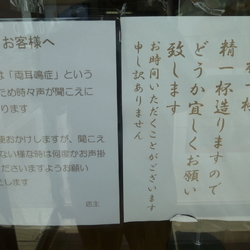 お客様へ
は「両耳鳴症」という
ため時々声が聞こえに
ります
おかけしますが、聞こえ
ない様な時は何度かお声掛
くださいますようお願い
します
店主
精一杯造りますので
どうか宜しくお願い
致します
お時間いただくことがございます
申し訳ありません